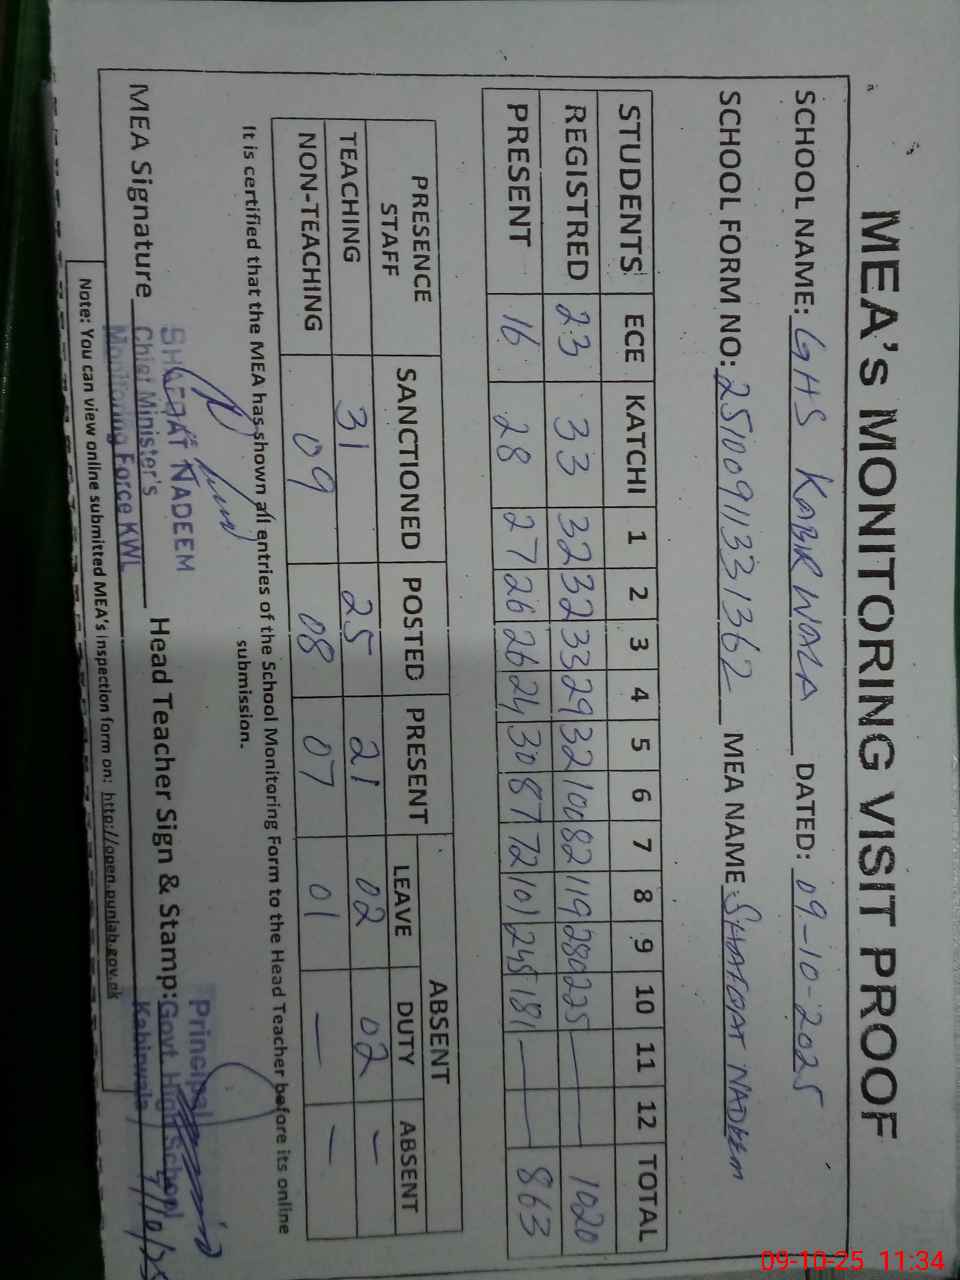 MEA's MONITORING VISIT PROOF
SCHOOL NAME: GHS KABIRWALA DATED: 09-10-2025
SCHOOL FORM NO: 2510091133 1362 MEA NAME: SHAFQAT NADEEM
STUDENTS ECE KATCHI 1 2 3 4 5 6 7 8 9 10 11 12 TOTAL
REGISTRED 23 33 32 32 33 29 32 100 82 119 280 225 — — 1020
PRESENT 16 28 27 26 26 24 30 87 72 101 245 181 — — 863
PRESENCE STAFF SANCTIONED POSTED PRESENT ABSENT
LEAVE DUTY ABSENT
TEACHING 31 25 21 02 02 —
NON-TEACHING 09 08 07 01 — —
It is certified that the MEA has shown all entries of the School Monitoring Form to the Head Teacher before its online
submission.
SHAFQAT NADEEM
Chief Minister's
Monitoring Force KWL
MEA Signature Head Teacher Sign & Stamp:
Principal
Govt High School
Kabirwala
Note: You can view online submitted MEA's inspection form on: http://open.punjab.gov.pk
09-10-25 11:34